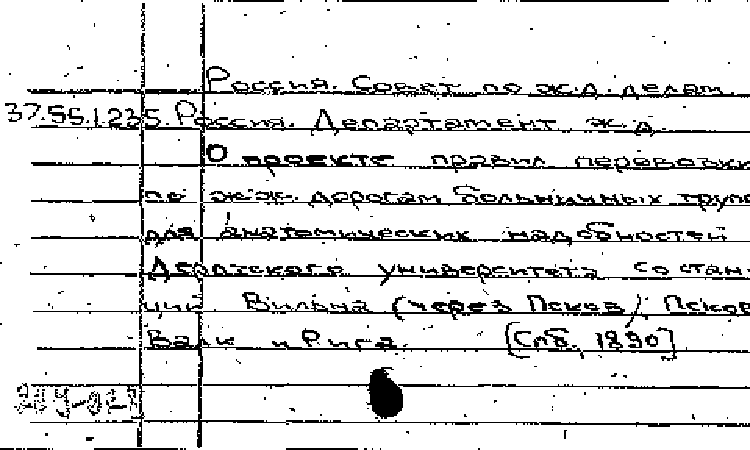 Россия. Совет по ж.д. делам
37.55.1.235. Россия. Департамент ж.д.
О проекте правил перевозки
по ж.ж. дорогам больничных трупо
для анатомических надобностей
Дерптского университета со стан-
ций Вильна (через Псков), Псков
Валк и Рига. [Спб., 1890]